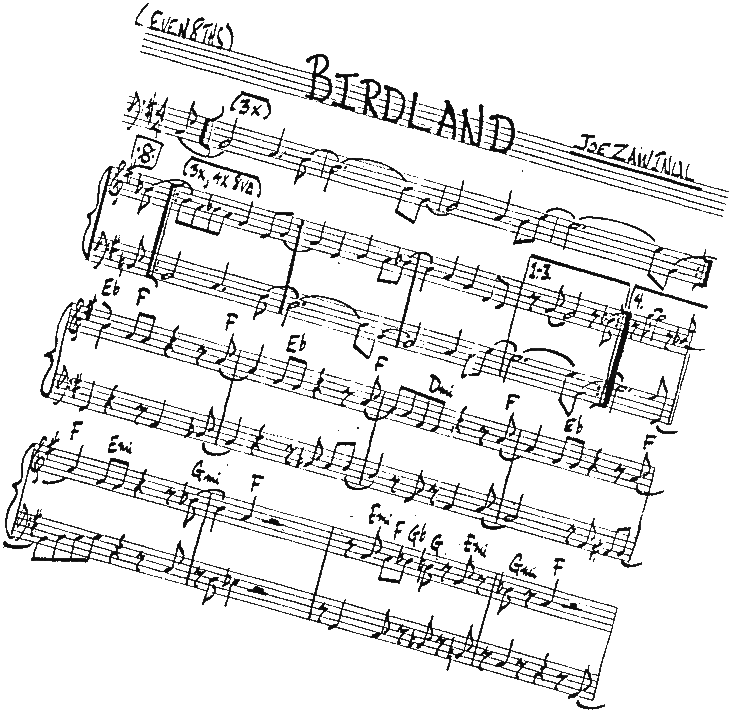 (EVEN 8THS)
BIRDLAND
JOE ZAWINUL
(3X)
(3X, 4X 8VA)
1-3.
4.
Eb F F Eb F Dmi F Eb F
F Emi Gmi F Emi F Gb G Emi Gmi F